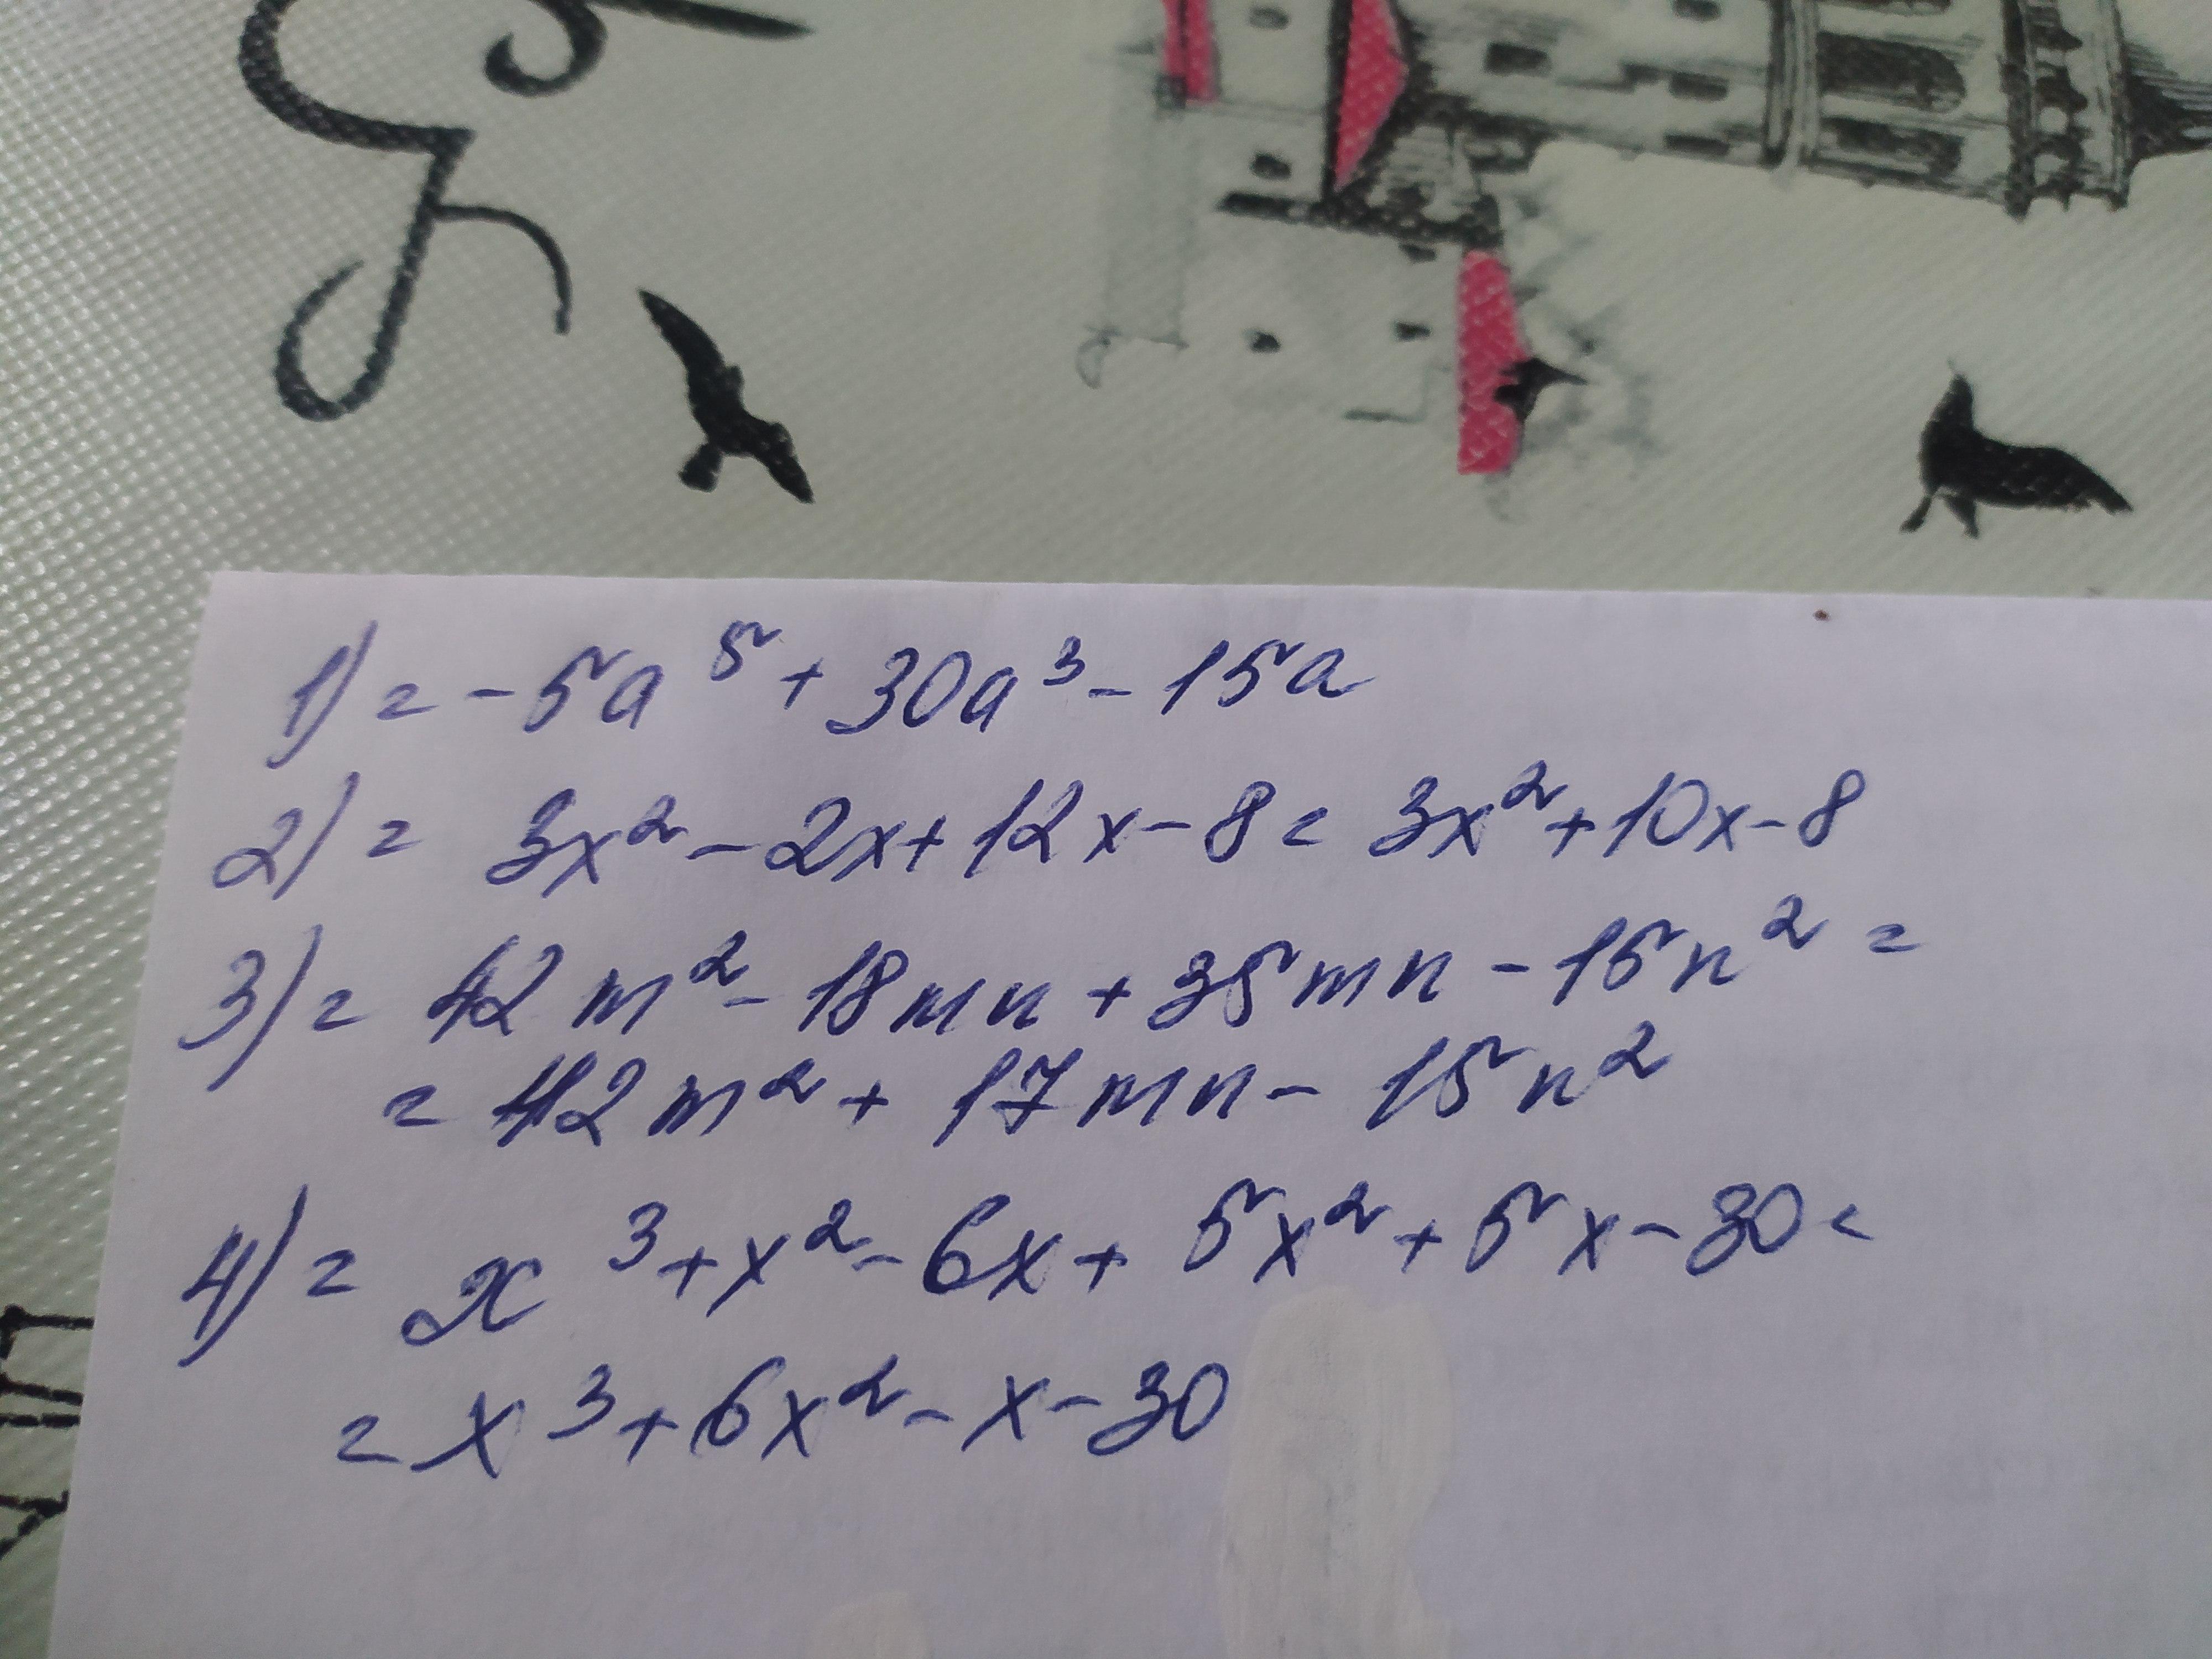 1) = -5a⁵ + 30a³ - 15a
2) = 3x² - 2x + 12x - 8 = 3x² + 10x - 8
3) = 42m² - 18mn + 35mn - 15n² =
= 42m² + 17mn - 15n²
4) = x³ + x² - 6x + 5x² + 5x - 30 =
= x³ + 6x² - x - 30